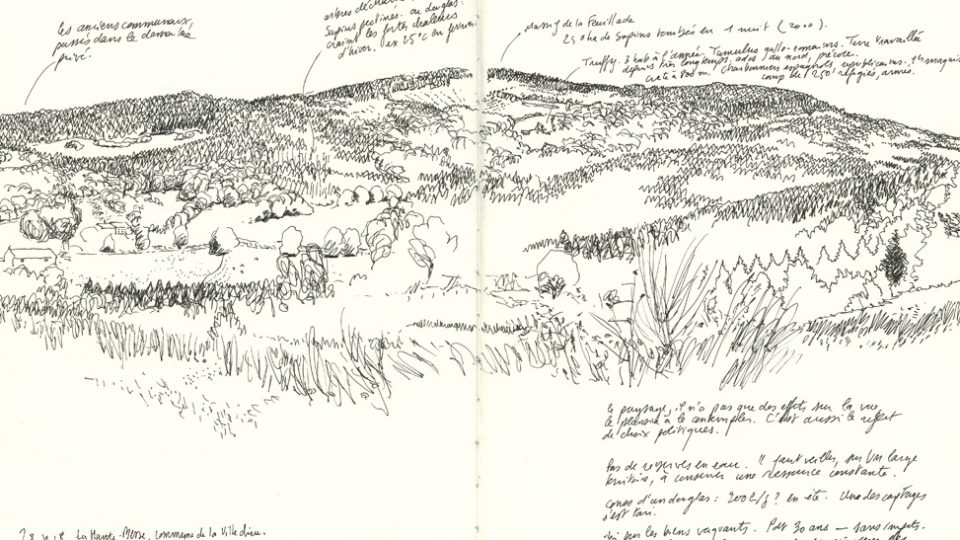 les anciens communaux,
passés dans le domaine
privé.
arbres
sapins pectinés. ou douglas.
craint les fortes chaleurs
d'hiver. ex 25°c en février
Massif de la Feuillade
250 ha de sapins tombés en 1 nuit (2010).
Truffy. 3 hab à l'année. Tumulus gallo-romains. Terre travaillée
depuis très longtemps, du nord,
crête à 800 m. Charbonniers espagnols, républicains. 1er maquis
coup de 250 réfugiés, armés.
le paysage, il n'a pas que des effets sur la vue,
le plaisir à le contempler. C'est aussi le reflet
de choix politiques.
Pas de réserves en eau. Il faut veiller, sur un large
territoire, à conserver une ressource constante.
conso d'un douglas : 200 l/j ? en été. Une des captages
s'est tari.
les biens vacants. Pdt 30 ans — sans impôts.
La Haute-Mosse, commune de la Villedieu.